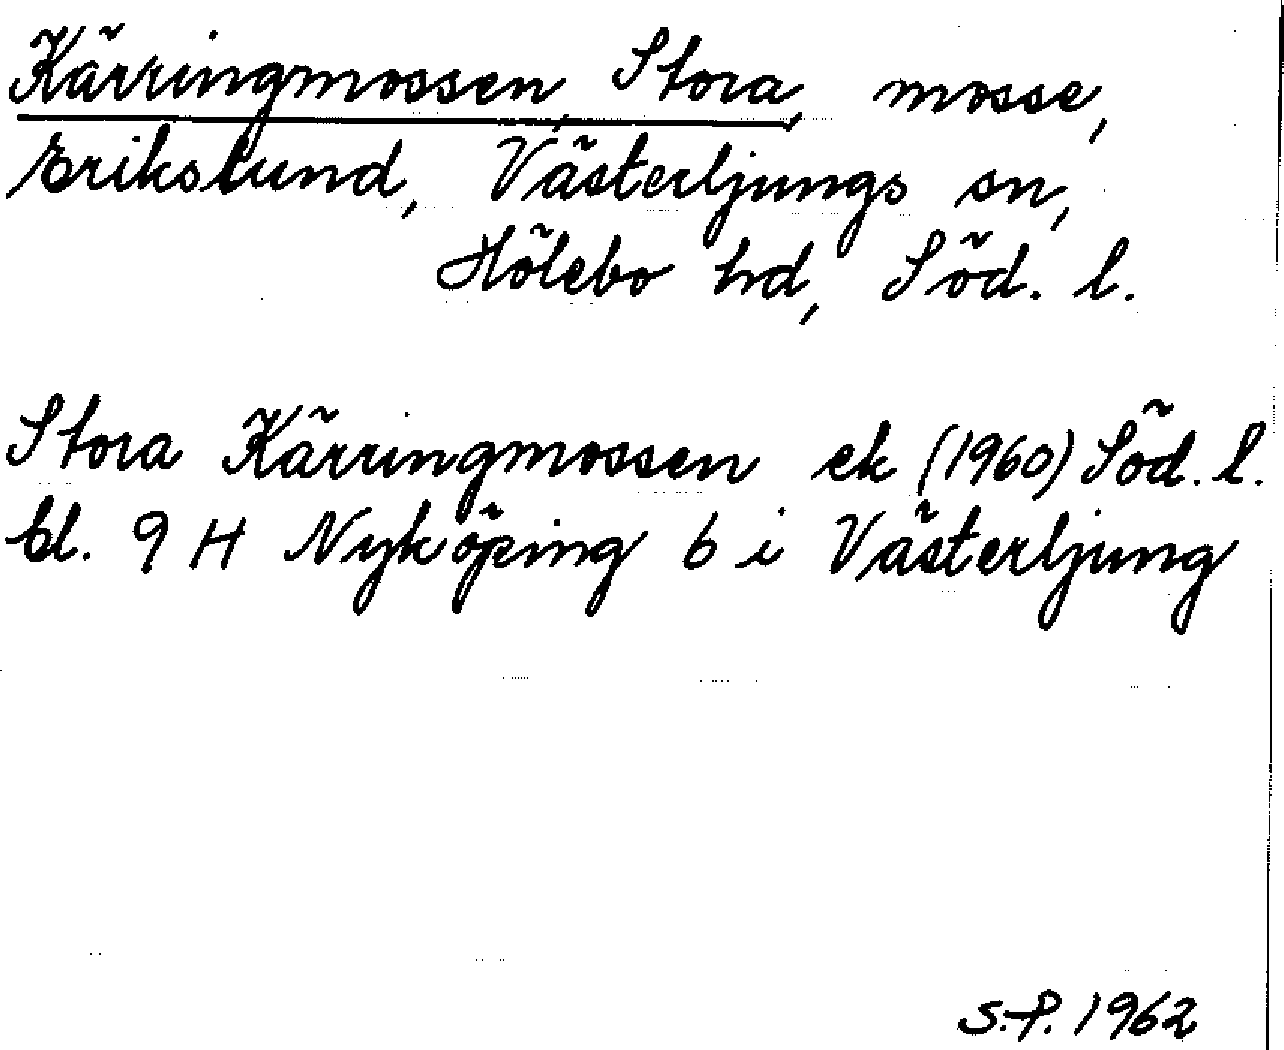 Kärringmossen, Stora, mosse,
Erikslund, Västerljungs sn,
Hölebo hd, Söd. l.
Stora Kärringmossen ek (1960) Söd. l.
bl. 9 H Nyköping 6 i Västerljung
S.-P. 1962